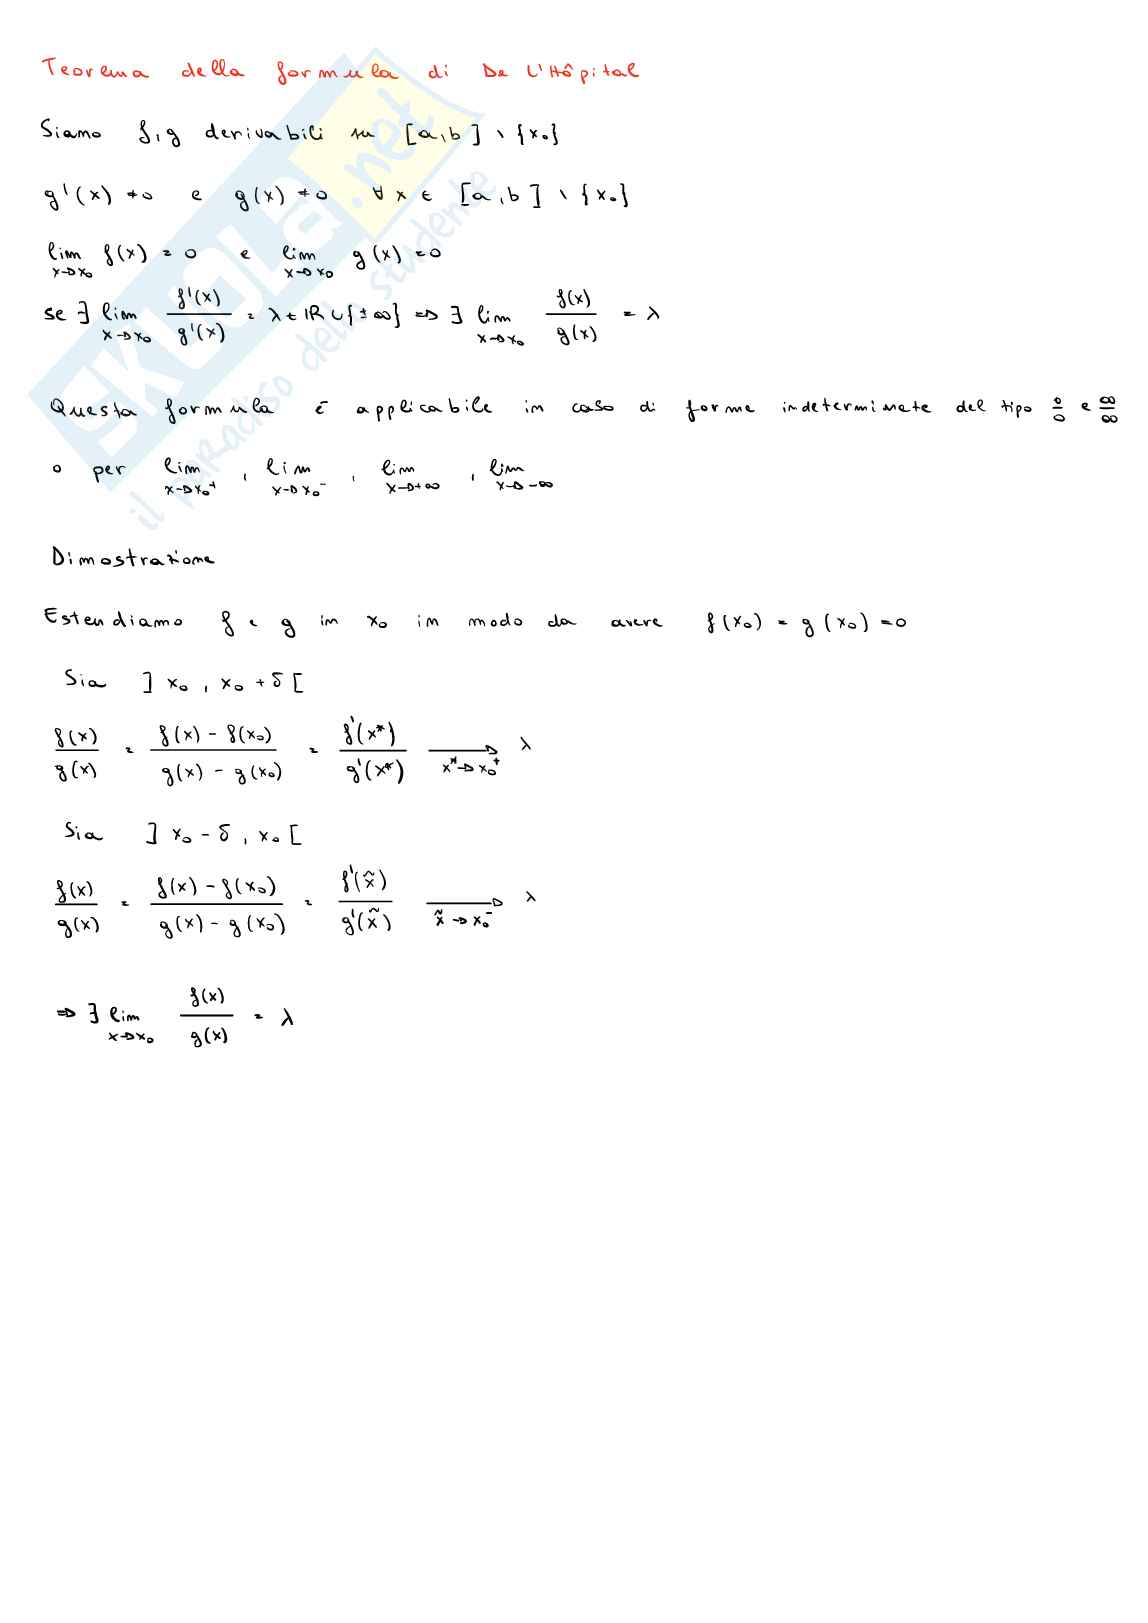 Teorema della formula di De L'Hôpital
Siamo f,g derivabili su [a,b] \ {x₀}
g'(x) ≠0 e g(x) ≠0 ∀ x ∈ [a,b] \ {x₀}
lim x→x₀ f(x) = 0 e lim x→x₀ g(x) =0
se ∃ lim x→x₀ f'(x)/g'(x) = λ ∈ ℝ ∪ {±∞} ⇒ ∃ lim x→x₀ f(x)/g(x) = λ
Questa formula è applicabile in caso di forme indeterminate del tipo 0/0 e ∞/∞
o per lim x→x₀⁺ , lim x→x₀⁻ , lim x→+∞ , lim x→-∞
Dimostrazione
Estendiamo f e g in x₀ in modo da avere f(x₀) = g(x₀) =0
Sia ] x₀ , x₀ + δ [
f(x)/g(x) = (f(x) - f(x₀))/(g(x) - g(x₀)) = f'(x*)/g'(x*) ⟶ x*→x₀⁺ λ
Sia ] x₀ - δ , x₀ [
f(x)/g(x) = (f(x) - f(x₀))/(g(x) - g(x₀)) = f'(x̃)/g'(x̃) ⟶ x̃→x₀⁻ λ
⇒ ∃ lim x→x₀ f(x)/g(x) = λ
SKUOLA.net
il paradiso dello studente